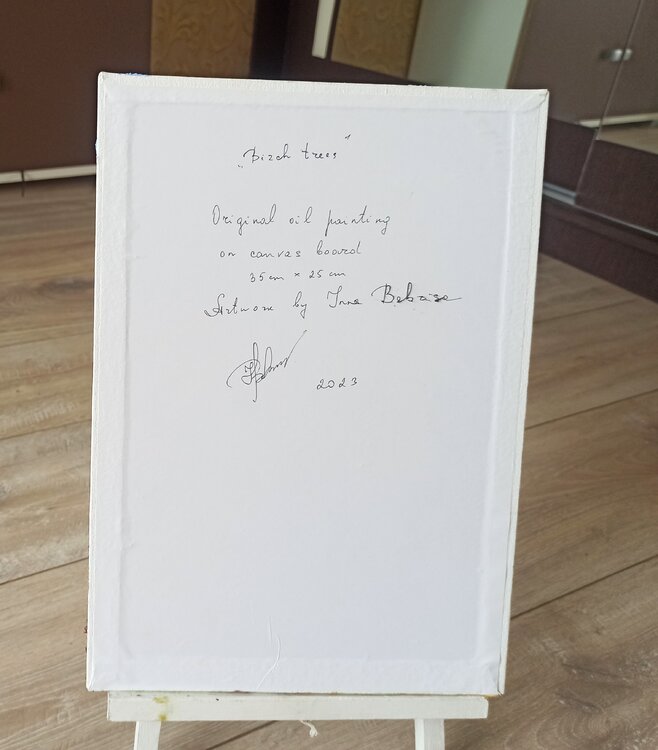 „Birch trees"
Original oil painting
on canvas board
35 cm × 25 cm
Artwork by Inna
2023